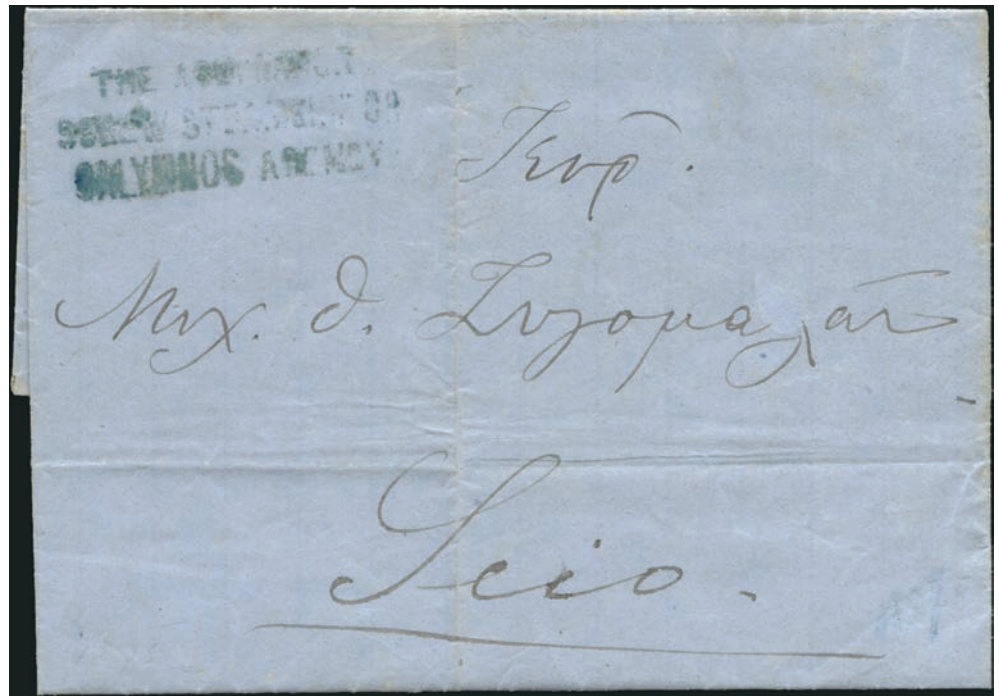 THE
SCREW STEAMSHIP CO
CALYMNOS AGENCY
Κυρ.
Μιχ. Θ.
Scio.